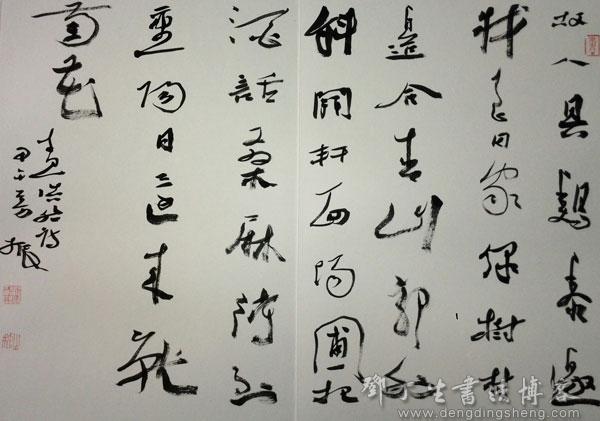 故人具鷄黍邀
我至田家綠樹村
邊合青山郭外
斜開軒面場圃把
酒話桑麻待到
重陽日還來就
菊花
孟浩然詩
甲午
鄧丁生書法博客
www.dengdingsheng.com